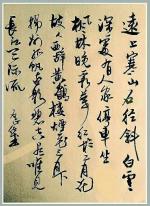 遠上寒山石徑斜白雲
深處有家停車坐
楓林晚霜葉紅於二月花
故人西辭黃鶴樓煙花三月
揚州孤帆遠影碧空盡唯見
長江天際流